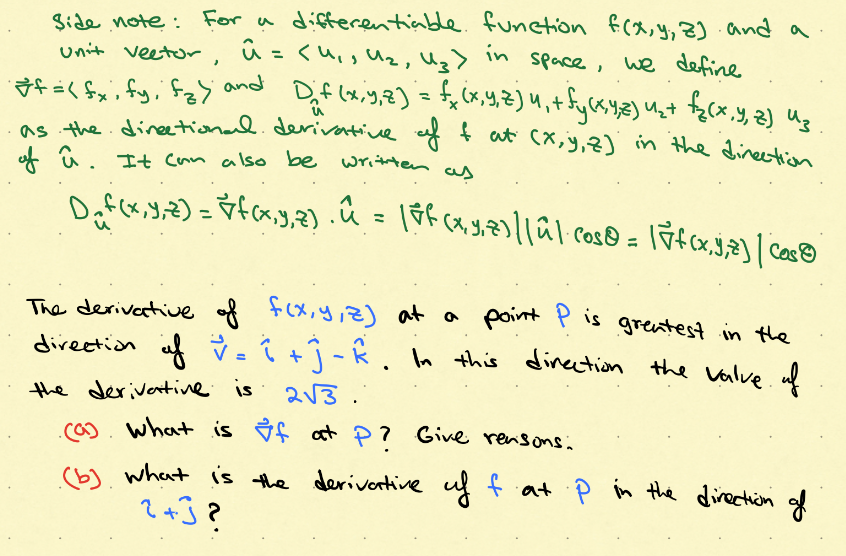 Side note: For a differentiable function f(x,y,z) and a
unit vector, û = <u₁, u₂, u₃> in space, we define
∇⃗f = <fₓ, f_y, f_z> and D_û f(x,y,z) = fₓ(x,y,z) u₁ + f_y(x,y,z) u₂ + f_z(x,y,z) u₃
as the directional derivative of f at (x,y,z) in the direction
of û. It can also be written as
D_û f(x,y,z) = ∇⃗f(x,y,z) . û = |∇⃗f(x,y,z)||û| cosθ = |∇⃗f(x,y,z)| cosθ
The derivative of f(x,y,z) at a point P is greatest in the
direction of v⃗ = î + ĵ - k̂. In this direction the value of
the derivative is 2√3.
(a) What is ∇⃗f at P? Give reasons.
(b) What is the derivative of f at P in the direction of
î + ĵ?